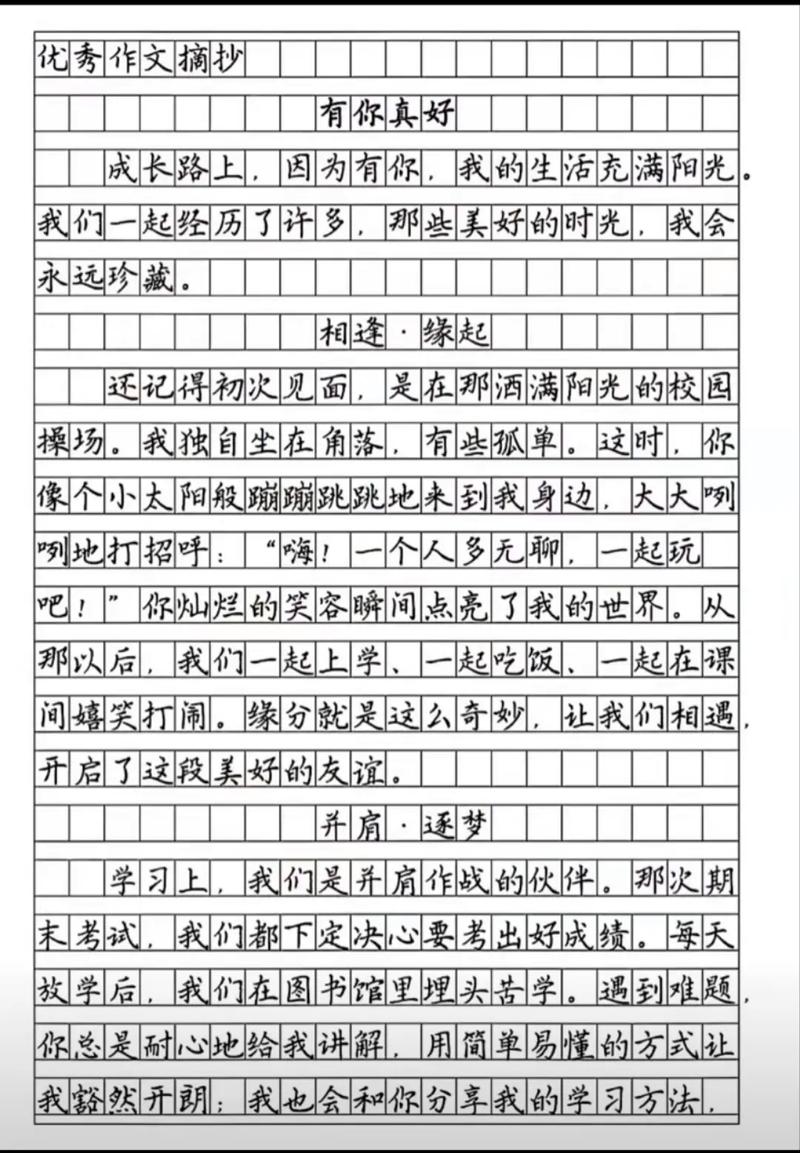 优秀作文摘抄
有你真好
成长路上，因为有你，我的生活充满阳光。
我们一起经历了许多，那些美好的时光，我会
永远珍藏。
相逢·缘起
还记得初次见面，是在那洒满阳光的校园
操场。我独自坐在角落，有些孤单。这时，你
像个小太阳般蹦蹦跳跳地来到我身边，大大咧
咧地打招呼：“嗨！一个人多无聊，一起玩
吧！”你灿烂的笑容瞬间点亮了我的世界。从
那以后，我们一起上学、一起吃饭、一起在课
间嬉笑打闹。缘分就是这么奇妙，让我们相遇，
开启了这段美好的友谊。
并肩·逐梦
学习上，我们是并肩作战的伙伴。那次期
末考试，我们都下定决心要考出好成绩。每天
放学后，我们在图书馆里埋头苦学。遇到难题，
你总是耐心地给我讲解，用简单易懂的方式让
我豁然开朗；我也会和你分享我的学习方法，